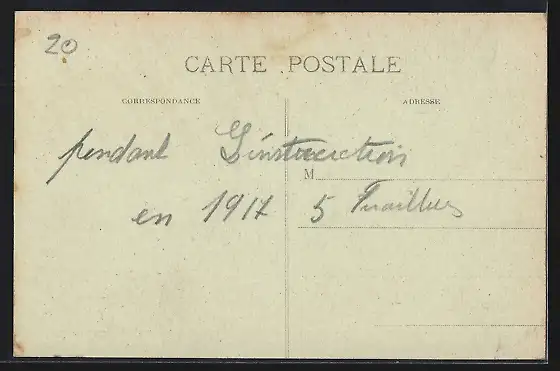 20
CARTE POSTALE
CORRESPONDANCE
ADRESSE
pendant L'instruction
M
en 1917 5